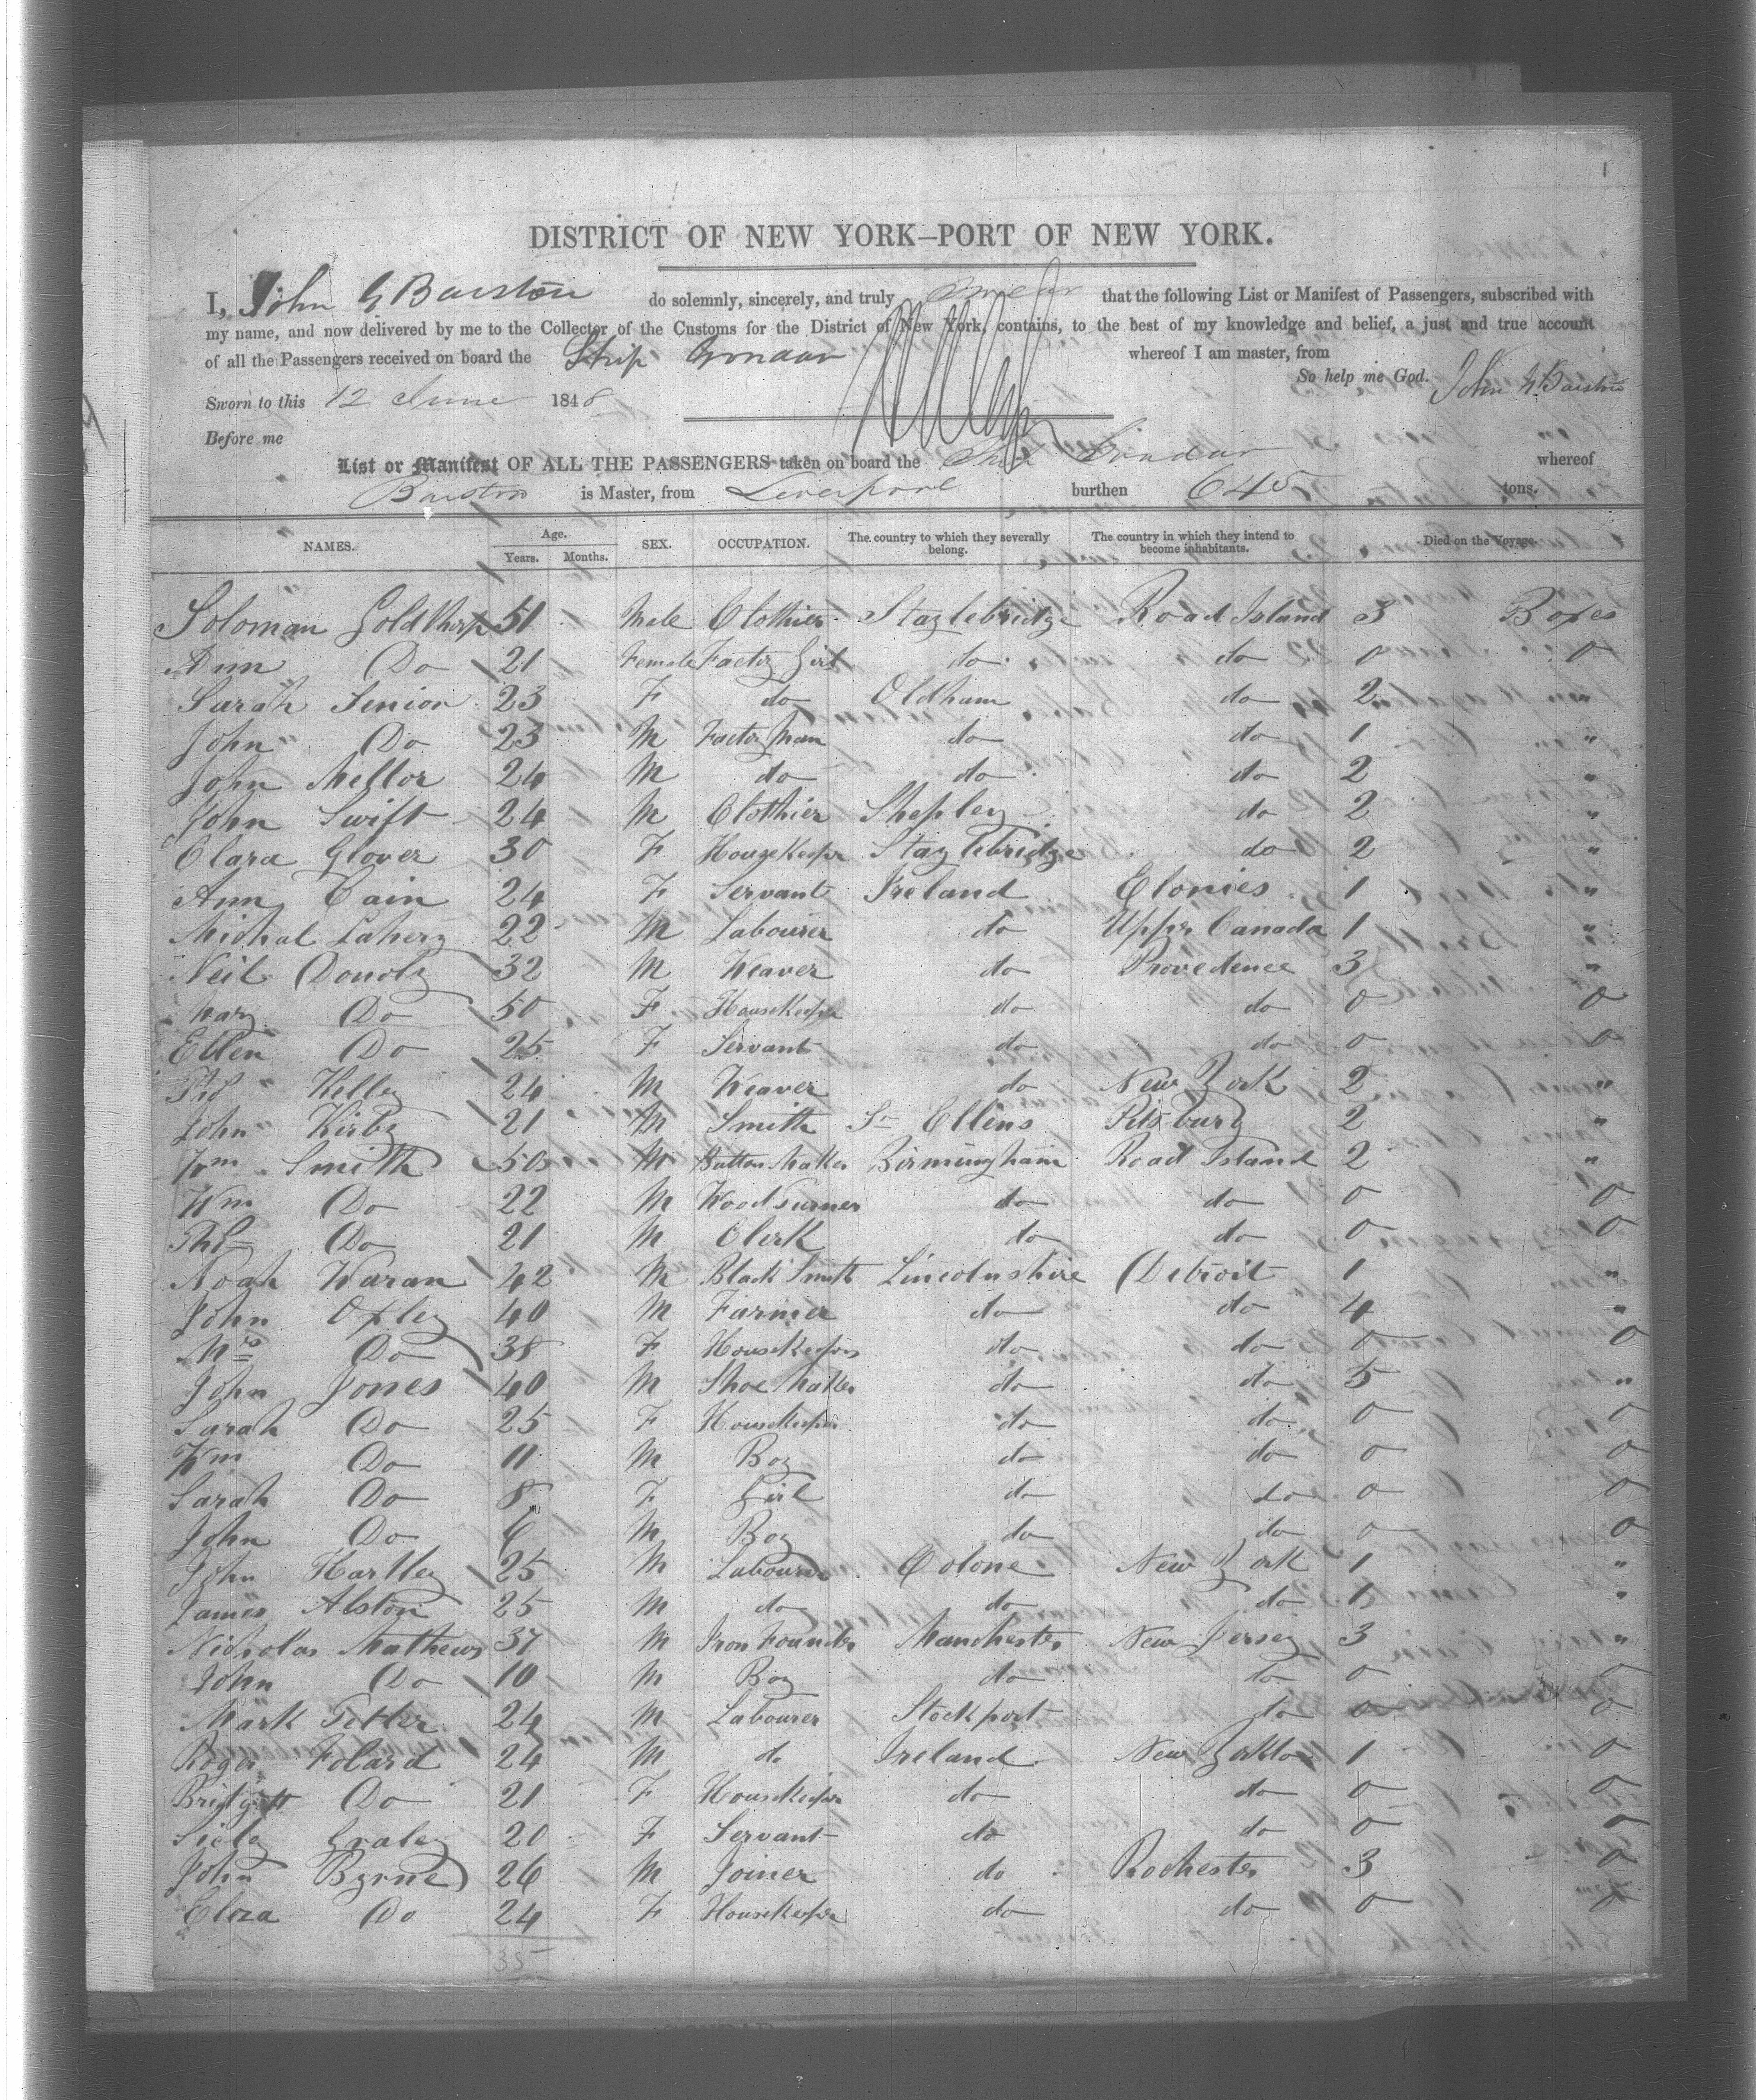 1
DISTRICT OF NEW YORK–PORT OF NEW YORK.
I, John G Barstow do solemnly, sincerely, and truly swear that the following List or Manifest of Passengers, subscribed with
my name, and now delivered by me to the Collector of the Customs for the District of New York, contains, to the best of my knowledge and belief, a just and true account
of all the Passengers received on board the Ship Gondar whereof I am master, from
So help me God. John G. Barstow
Sworn to this 12 June 1848
Before me
List or Manifest OF ALL THE PASSENGERS taken on board the Ship Gondar whereof
Barstow is Master, from Liverpool burthen 645 tons.
NAMES. Age. Years. Months. SEX. OCCUPATION. The country to which they severally belong. The country in which they intend to become inhabitants. Died on the Voyage.
Soloman Goldthorp 51 Male Clothier Staylebridge Road Island 3 Boxes
Ann Do 21 Female Facty Girl do do 0 0
Sarah Senior 23 F do Oldham do 2 "
John " Do 23 M Factory Man do do 1 "
John Mellor 24 M do do do 2 "
John Swift 24 M Clothier Shepley do 2 "
Clara Glover 30 F Housekeeper Staylebridge do 2 "
Ann Cain 24 F Servant Ireland Clonies 1 "
Michal Lahery 22 M Labourer do Upper Canada 1 "
Neil Donoly 32 M Weaver do Provedence 3 "
Mary Do 50 F Housekeeper do do 0 0
Ellen Do 25 F Servant do do 0 0
" Kelley 24 M Weaver do New York 2 "
John " Kirby 21 M Smith St Ellens Pitsburg 2 "
Wm Smith 50 M Button Maker Birmingham Road Island 2 "
Wm Do 22 M Wood Turner do do 0 0
Ths Do 21 M Clerk do do 0 0
Noah Waran 42 M Black Smith Lincolnshire Detroit 1 "
John Oxley 40 M Farmer do do 4 "
Mrs Do 38 F Housekeeper do do 0 0
John Jones 40 M Shoe Maker do do 5 "
Sarah Do 25 F Housekeeper do do 0 0
Wm Do 11 M Boy do do 0 0
Sarah Do 8 F Girl do do 0 0
John Do 6 M Boy do do 0 0
John Hartley 25 M Labourer Colone New York 1 "
James Alston 25 M do do do 1 "
Nicholas Mathews 37 M Iron Founder Manchester New Jersey 3 "
John Do 10 M Boy do do 0 0
Mark Tetler 24 M Labourer Stockport do 0 0
Roger Folard 24 M do Ireland New York 1 0
Bridgett Do 21 F Housekeeper do do 0 0
Sicly Graley 20 F Servant do do 0 0
John Byrne 26 M Joiner do Rochester 3 0
Eliza Do 24 F Housekeeper do do 0 0
35